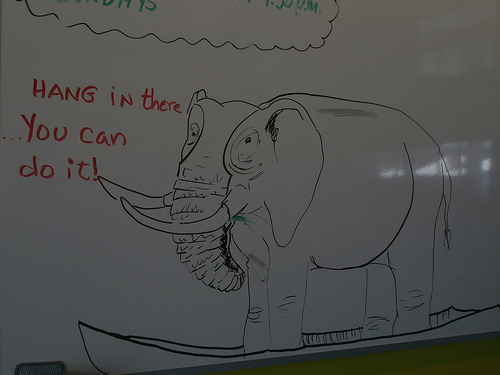 SUNDAYS
7:30 p.m.
HANG iN there
...You can
do it!